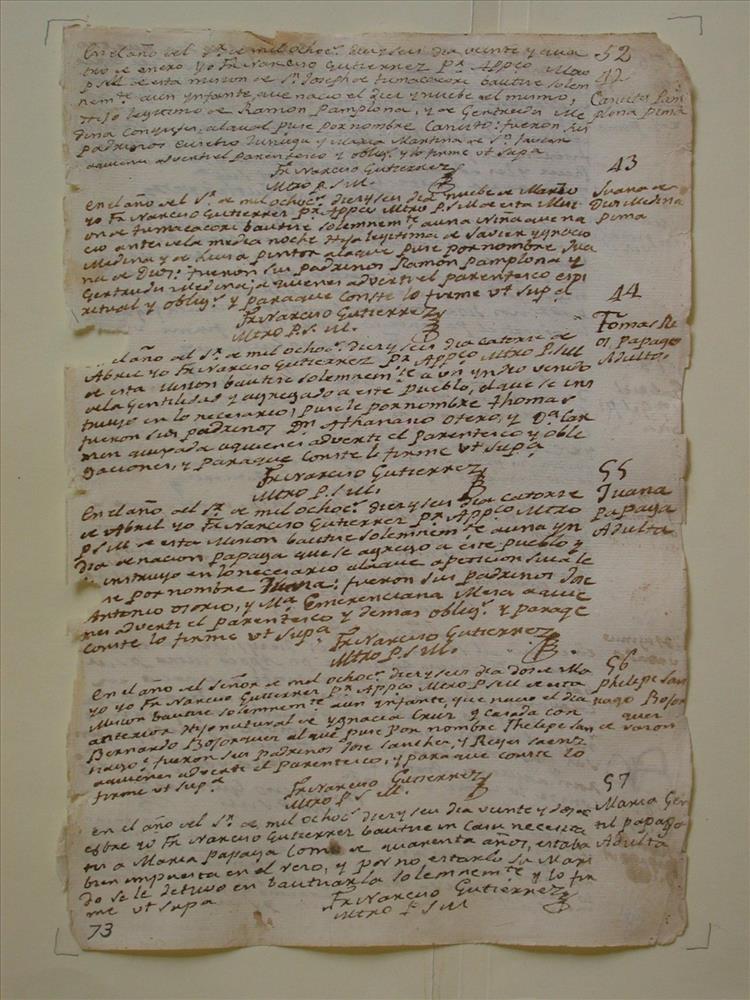 En el año del Sr. de mil ochoc.s diez y seis dia veinte y qua
tro de enero yo Fr. Narciso Gutierrez Pr. Appco Mtro
P.S.M. de esta mision de Sn. Joseph de tumacacori bautise solem
nem.te a un ynfante que nacio el diez y nuebe del mismo,
Hijo legitimo de Ramon Pamplona, y de Gertrudis Me
dina Conyuges, al qual puse por nombre Canuto: fueron sus
Padrinos Eusebio Zuñiga y Maria Martina de Sn. Javier
aquienes adverti el parentesco y oblig.s y lo firme ut supa
Fr. Narciso Gutierrez
Mtro P.S.M.
52
42
Canuto Pam
plona Pima
En el año del Sr. de mil ochoc.s diez y seis dia nuebe de Marzo
yo Fr. Narciso Gutierrez Pr. Appco Mtro P.S.M. de esta Misi
on de tumacacori bautise solemnem.te a una niña que na
cio antes de la media noche Hija legitima de Xavier ygnacio
Medina y de Luisa Pintor ala que puse por nombre Jua
na de Dios: fueron sus padrinos Ramon Pamplona y
Gertrudis Medina; a quienes adverti el parentesco espi
ritual y oblig.s y paraque conste lo firme ut supa
Fr. Narciso Gutierrez
Mtro P.S.M.
43
Juana de
Dios Medina
Pima
En el año del Sr. de mil ochoc.s diez y seis dia catorse de
Abril yo Fr. Narciso Gutierrez Pr. Appco Mtro P.S.M
de esta Mision bautise solemnem.te a un yndio venido
dela Gentilidad y agregado a este Pueblo, al que se ins
truyo en lo necesario, puse le por nombre Thomas
fueron sus padrinos Dn. Athanacio Otero, y Da. Car
men quixada aquienes adverti el parentesco y oblig
gaciones, y paraque conste lo firme ut supa
Fr. Narciso Gutierrez
Mtro P.S.M.
44
Tomas Re
os Papago
Adulto
En el año del Sr. de mil ochoc.s diez y seis dia catorse
de Abril yo Fr. Narciso Gutierrez Pr. Appco Mtro
P.S.M de esta Mision bautise solemnem.te a una yn
dia de nacion papaga que se agrego a este pueblo y
instruyo en lo necesario ala que a peticion sua le
se por nombre Juana: fueron sus padrinos Jose
Antonio Osorio, y Ma. Emerenciana Mesa a quie
nes adverti el parentesco y demas oblig.s y paraqe
conste lo firme ut supa
Fr. Narciso Gutierrez
Mtro P.S.M.
55
Juana
Papaga
Adulta
En el año del Señor de mil ochoc.s diez y seis dia dos de Ma
yo yo Fr. Narciso Gutierrez Pr. Appco Mtro P.S.M de esta
Mision bautise solemnem.te a un ynfante, que nacio el dia
anterior Hijo natural de ygnacia Cruz y casada con
Bernardo Bojorquez al que puse por nombre Phelepe San
tiago: fueron sus padrinos Jose Sanches, y Reyes Saenz
aquienes adverti el parentesco, y paraque conste lo
firme ut supa
Fr. Narciso Gutierrez
Mtro P.S.M.
56
Phelepe San
tiago Bojor
quez
de razon
En el año del Sr. de mil ochoc.s diez y seis dia veinte y dos de
yo Fr. Narciso Gutierrez bautise in Casu necesita
tis a Maria Papaga como de quarenta años, estaba
bien impuesta en el reso, y por no estarlo su Mari
do se le detuvo en bautizarla solemnem.te y lo fir
me ut supa
Fr. Narciso Gutierrez
Mtro P.S.M
57
Maria Gen
til papago
Adulta
73